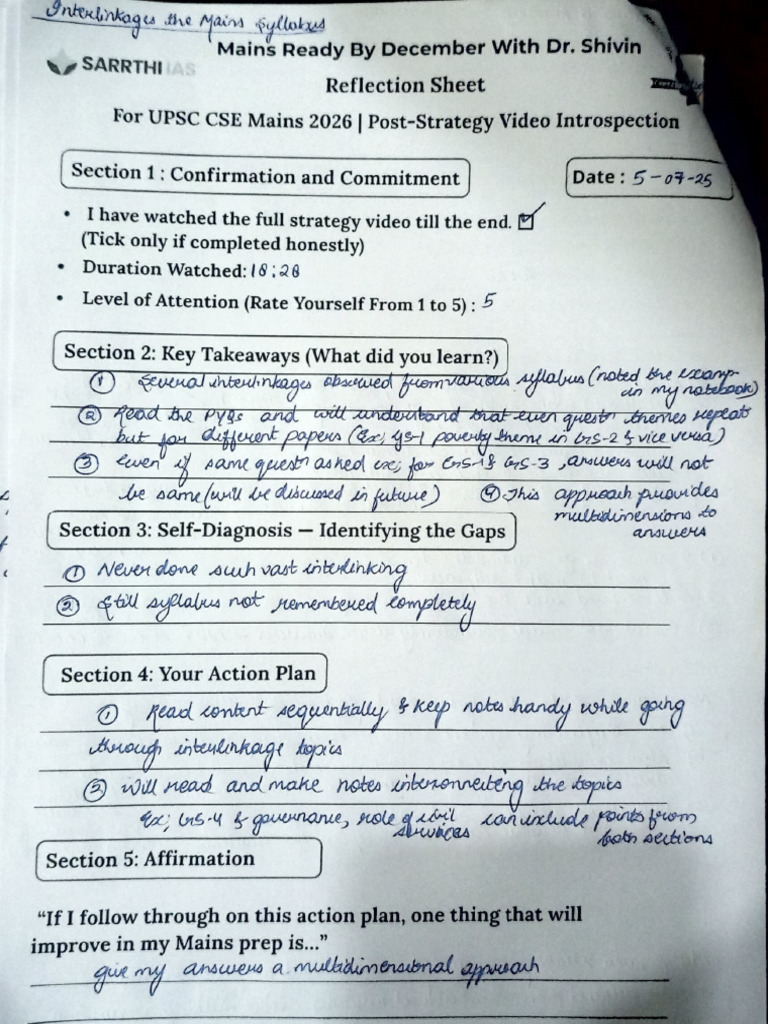 Interlinkages the Mains Syllabus
Mains Ready By December With Dr. Shivin
SARRTHI IAS
Reflection Sheet
For UPSC CSE Mains 2026 | Post-Strategy Video Introspection
Section 1 : Confirmation and Commitment
Date : 5-07-25
• I have watched the full strategy video till the end. ☑
(Tick only if completed honestly)
• Duration Watched: 18:28
• Level of Attention (Rate Yourself From 1 to 5) : 5
Section 2: Key Takeaways (What did you learn?)
① Several interlinkages observed from various syllabus (noted the examp-
in my notebook)
② Read the PYQs and will understand that even questn themes repeat
but for different papers (Ex; GS-1 poverty theme in GS-2 & vice versa)
③ Even if same questn asked ex; for GS-1 & GS-3, answers will not
be same (will be discussed in future) ④ This approach provides
multidimensions to
answers
Section 3: Self-Diagnosis — Identifying the Gaps
① Never done such vast interlinking
② Still syllabus not remembered completely
Section 4: Your Action Plan
① Read content sequentially & keep notes handy while going
through interlinkage topics
② Will read and make notes interconnecting the topics
Ex; GS-4 & governance, role of civil services can include points from
both sections
Section 5: Affirmation
"If I follow through on this action plan, one thing that will
improve in my Mains prep is..."
give my answers a multidimensional approach